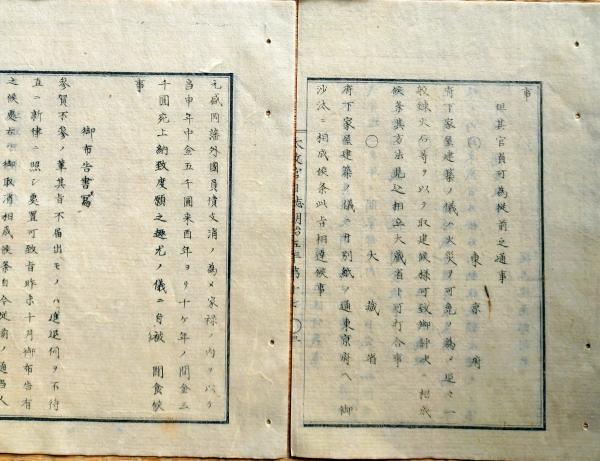 事
但其官員可為従前之通事
東京府
府下家屋建築ノ儀ハ火災ヲ可免ヲ為メ追々一
般煉火石等ヲ以テ取建候様可致御評決相成
候条其方法見込相立大蔵省ト可打合事
〇大蔵省
府下家屋建築ノ儀ニ付別紙ノ通東京府ヘ御
沙汰ニ相成候条此旨相達候事
太政官日誌明治五年第
元盛岡藩外国負債支消ノ為メ家禄ノ内ヲ以テ
当申年中金五千圓来酉年ヨリ十ケ年ノ間金三
千圓宛上納致度願之趣尤ノ儀ニ付被聞食候
事
御布告書写
参賀不参ノ輩其旨不届出モノハ進退伺ヲ不待
直ニ新律ニ照シ処置可致旨昨未十月御布告有
之候處右御取消相成候条自今従前ノ通当人